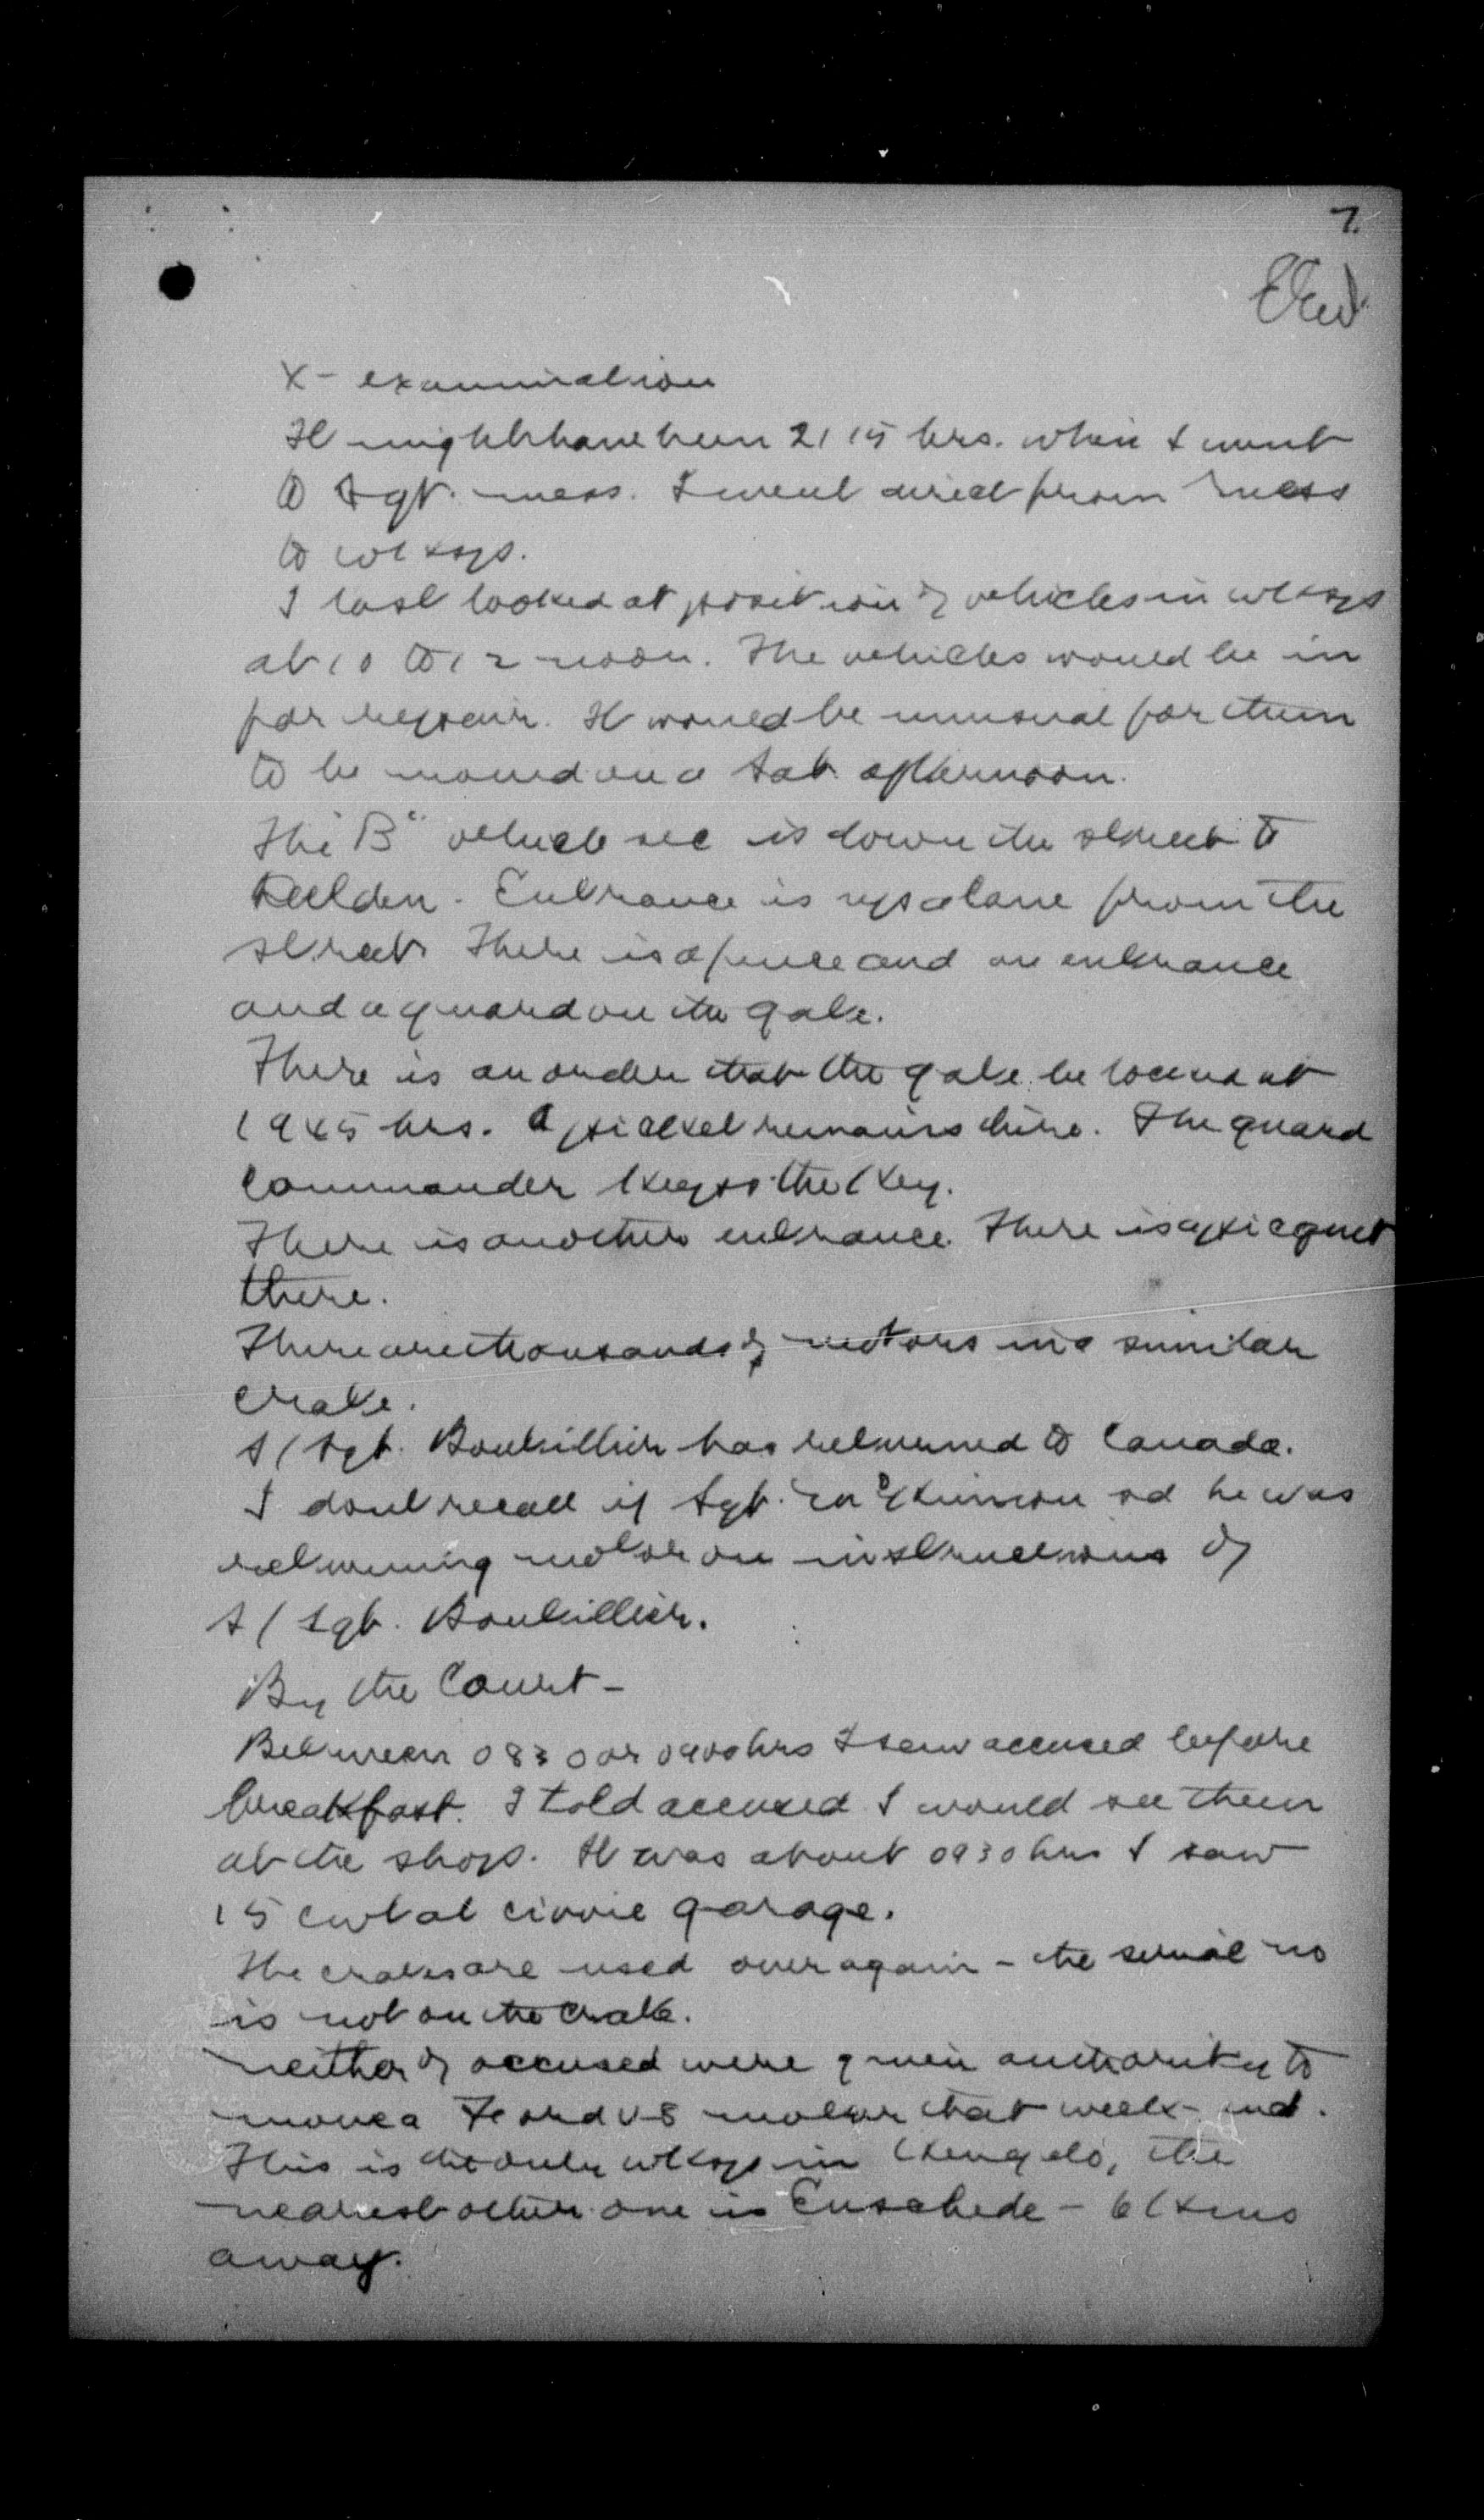 7.
X - examination
It might have been 2115 hrs. when I went
to Sgt. mess. I went direct from mess
to wksps.
I last looked at position of vehicles in wksps
at 10 to 12 noon. The vehicles would be in
for repair. It would be unusual for them
to be moved on a Sat. afternoon.
The "B" vehicle sec is down the street to
Beelden. Entrance is up a lane from the
street. There is a fence and an entrance
and a guard on the gate.
There is an order that the gate be locked at
1945 hrs. A picket remains there. The guard
commander keeps the key.
There is another entrance. There is a picquet
there.
There are thousands of motors in a similar
crate.
S/Sgt. Boutillier has returned to Canada.
I dont recall if Sgt. said he was
returning motor on instructions of
S/Sgt. Boutillier.
By the Court -
Between 0830 or 0900 hrs I saw accused before
breakfast. I told accused I would see them
at the shop. It was about 0930 hrs I saw
15 cwt at civvie garage.
The crates are used over again - the serial no
is not on the crate.
Neither of accused were given authority to
move a Ford V-8 motor that week-end.
This is the only wksp in Hengelo, the
nearest other one is Enschede - 6 kms
away.